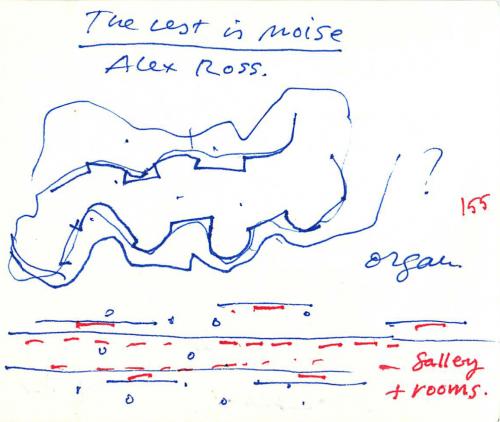 The rest is noise
Alex Ross.
?
155
organ
gallery
+ rooms.